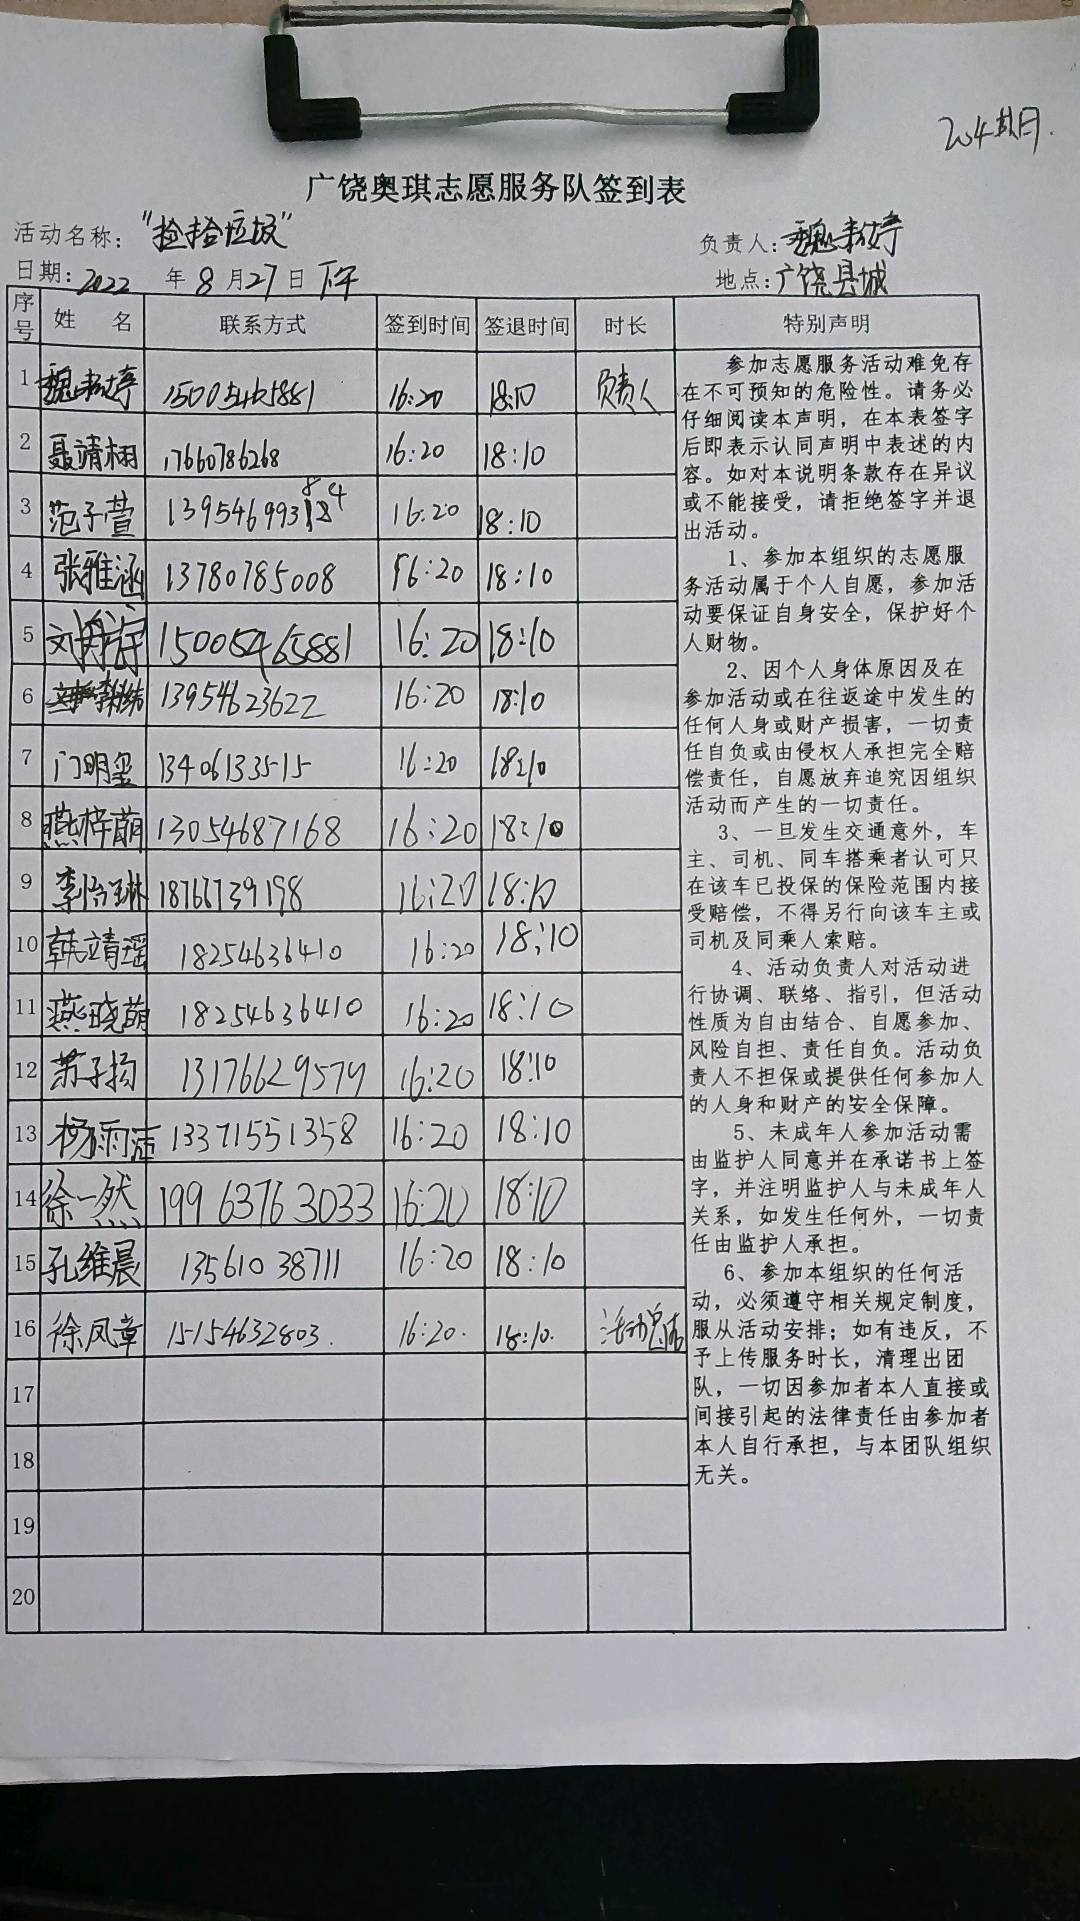 广饶奥琪志愿服务队签到表
活动名称："捡拾垃圾" 负责人：魏
日期：2022 年 8 月 27 日 下午 地点：广饶县城
序号 姓名 联系方式 签到时间 签退时间 时长 特别声明
1 魏 15005465881 16:20 18:10 负责人
2 聂靖栩 17660786268 16:20 18:10
3 范子萱 139546993 84 16:20 18:10
4 张雅涵 13780785008 16:20 18:10
5 刘 15005465881 16:20 18:10
6 13954623622 16:20 18:10
7 门明玺 13406133515 16:20 18:10
8 燕梓萌 13054687168 16:20 18:10
9 李怡琳 18766739198 16:20 18:10
10 韩靖瑶 18254636410 16:20 18:10
11 燕晓萌 18254636410 16:20 18:10
12 苏子扬 13176629579 16:20 18:10
13 杨雨 13371551358 16:20 18:10
14 徐一然 19963763033 16:20 18:10
15 孔维晨 13561038711 16:20 18:10
16 徐凤章 15154632803. 16:20. 18:10. 活动总结
17
18
19
20
参加志愿服务活动难免存
在不可预知的危险性。请务必
仔细阅读本声明，在本表签字
后即表示认同声明中表述的内
容。如对本说明条款存在异议
或不能接受，请拒绝签字并退
出活动。
1、参加本组织的志愿服
务活动属于个人自愿，参加活
动要保证自身安全，保护好个
人财物。
2、因个人身体原因及在
参加活动或在往返途中发生的
任何人身或财产损害，一切责
任自负或由侵权人承担完全赔
偿责任，自愿放弃追究因组织
活动而产生的一切责任。
3、一旦发生交通意外，车
主、司机、同车搭乘者认可只
在该车已投保的保险范围内接
受赔偿，不得另行向该车主或
司机及同乘人索赔。
4、活动负责人对活动进
行协调、联络、指引，但活动
性质为自由结合、自愿参加、
风险自担、责任自负。活动负
责人不担保或提供任何参加人
的人身和财产的安全保障。
5、未成年人参加活动需
由监护人同意并在承诺书上签
字，并注明监护人与未成年人
关系，如发生任何外，一切责
任由监护人承担。
6、参加本组织的任何活
动，必须遵守相关规定制度，
服从活动安排；如有违反，不
予上传服务时长，清理出团
队，一切因参加者本人直接或
间接引起的法律责任由参加者
本人自行承担，与本团队组织
无关。